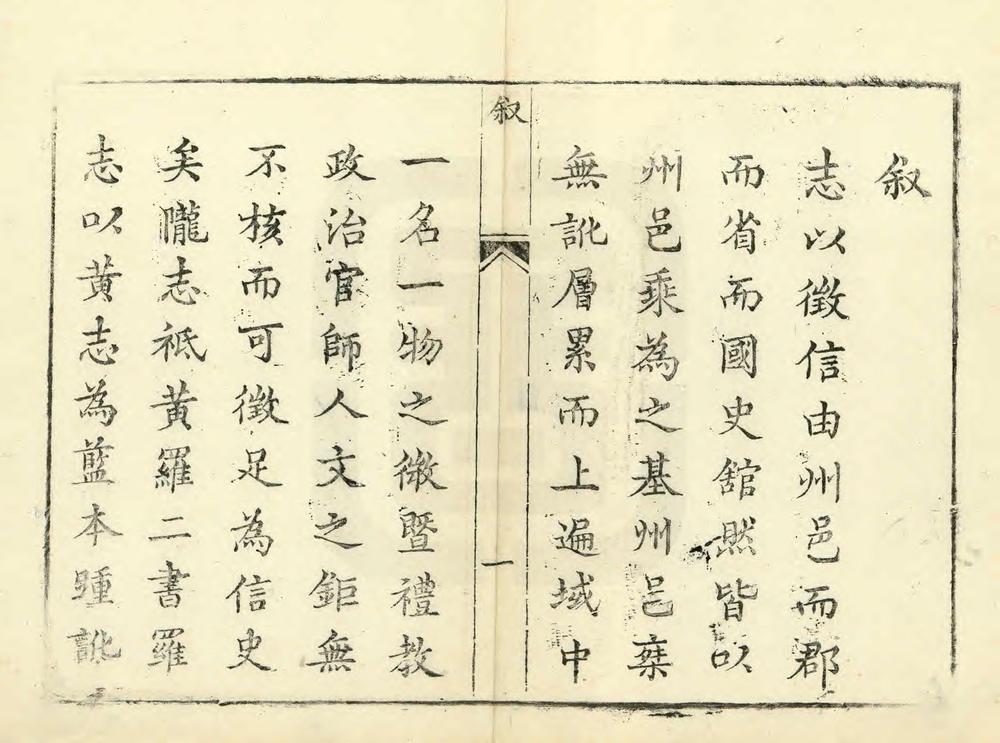 叙
志以徵信由州邑而郡
而省而國史舘㷊皆以
州邑乘為之基州邑桒
無訛層累而上遍域中
叙
一
一名一物之微暨禮教
政治官師人文之鉅無
不核而可徵足為信史
矣隴志祗黄羅二書羅
志以黄志為藍本踵訛